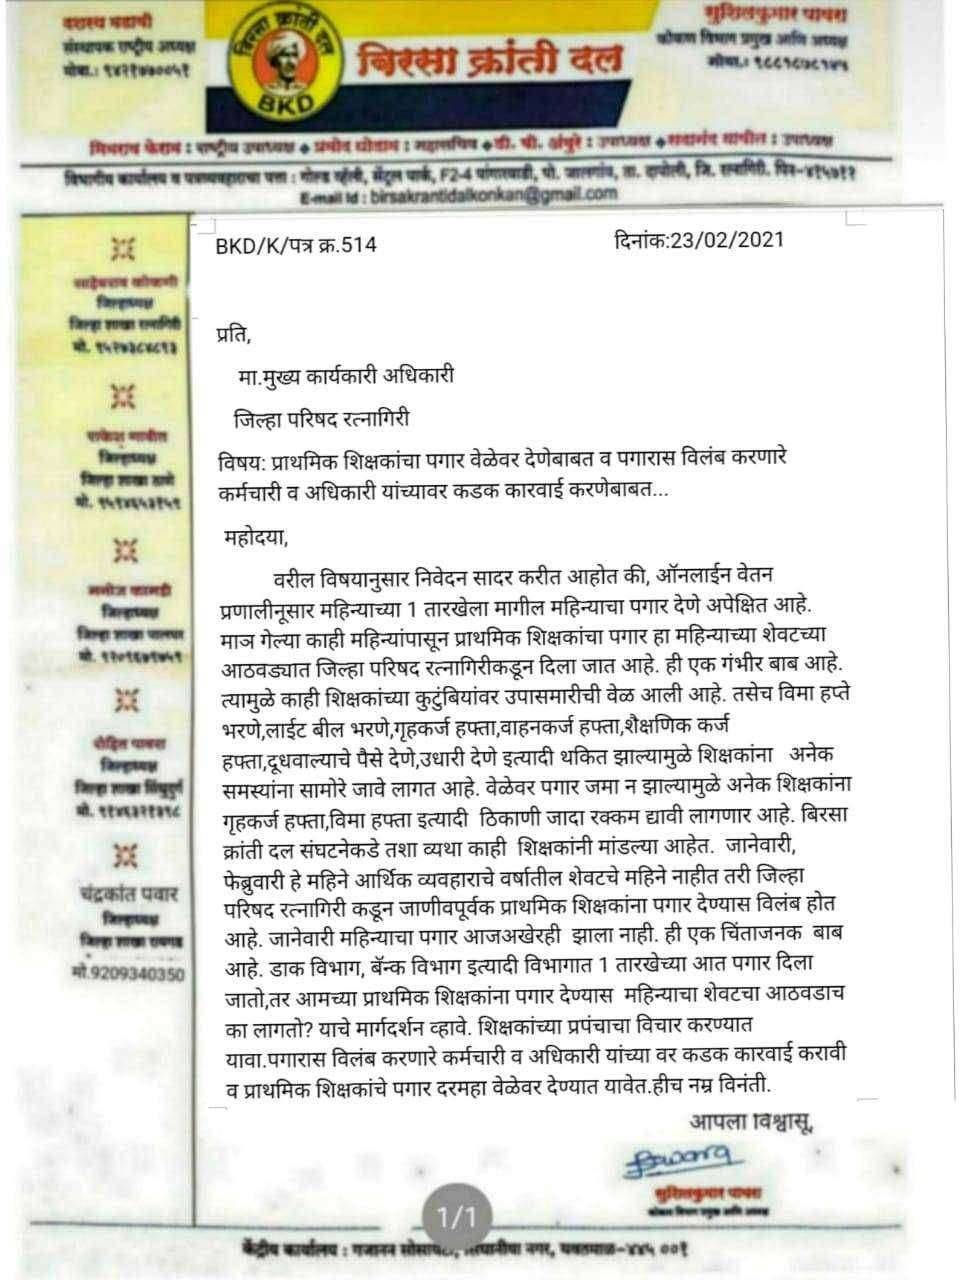 दशरथ मडावी
संस्थापक राष्ट्रीय अध्यक्ष
बिरसा क्रांती दल
BKD
बिरसा क्रांती दल
सुशिलकुमार पावरा
कोकण विभाग प्रमुख आणि अध्यक्ष
E-mail Id : birsakrantidalkonkan@gmail.com
BKD/K/पत्र क्र.514
दिनांक:23/02/2021
प्रति,
मा.मुख्य कार्यकारी अधिकारी
जिल्हा परिषद रत्नागिरी
विषय: प्राथमिक शिक्षकांचा पगार वेळेवर देणेबाबत व पगारास विलंब करणारे
कर्मचारी व अधिकारी यांच्यावर कडक कारवाई करणेबाबत...
महोदया,
वरील विषयानुसार निवेदन सादर करीत आहोत की, ऑनलाईन वेतन
प्रणालीनूसार महिन्याच्या 1 तारखेला मागील महिन्याचा पगार देणे अपेक्षित आहे.
माञ गेल्या काही महिन्यांपासून प्राथमिक शिक्षकांचा पगार हा महिन्याच्या शेवटच्या
आठवड्यात जिल्हा परिषद रत्नागिरीकडून दिला जात आहे. ही एक गंभीर बाब आहे.
त्यामुळे काही शिक्षकांच्या कुटुंबियांवर उपासमारीची वेळ आली आहे. तसेच विमा हप्ते
भरणे,लाईट बील भरणे,गृहकर्ज हफ्ता,वाहनकर्ज हफ्ता,शैक्षणिक कर्ज
हफ्ता,दूधवाल्याचे पैसे देणे,उधारी देणे इत्यादी थकित झाल्यामुळे शिक्षकांना अनेक
समस्यांना सामोरे जावे लागत आहे. वेळेवर पगार जमा न झाल्यामुळे अनेक शिक्षकांना
गृहकर्ज हफ्ता,विमा हफ्ता इत्यादी ठिकाणी जादा रक्कम द्यावी लागणार आहे. बिरसा
क्रांती दल संघटनेकडे तशा व्यथा काही शिक्षकांनी मांडल्या आहेत. जानेवारी,
फेब्रुवारी हे महिने आर्थिक व्यवहाराचे वर्षातील शेवटचे महिने नाहीत तरी जिल्हा
परिषद रत्नागिरी कडून जाणीवपूर्वक प्राथमिक शिक्षकांना पगार देण्यास विलंब होत
आहे. जानेवारी महिन्याचा पगार आजअखेरही झाला नाही. ही एक चिंताजनक बाब
आहे. डाक विभाग, बॅन्क विभाग इत्यादी विभागात 1 तारखेच्या आत पगार दिला
जातो,तर आमच्या प्राथमिक शिक्षकांना पगार देण्यास महिन्याचा शेवटचा आठवडाच
का लागतो? याचे मार्गदर्शन व्हावे. शिक्षकांच्या प्रपंचाचा विचार करण्यात
यावा.पगारास विलंब करणारे कर्मचारी व अधिकारी यांच्या वर कडक कारवाई करावी
व प्राथमिक शिक्षकांचे पगार दरमहा वेळेवर देण्यात यावेत.हीच नम्र विनंती.
जिल्हाध्यक्ष
जिल्हा शाखा रत्नागिरी
जिल्हाध्यक्ष
जिल्हा शाखा ठाणे
जिल्हाध्यक्ष
जिल्हा शाखा पालघर
जिल्हाध्यक्ष
जिल्हा शाखा सिंधुदुर्ग
चंद्रकांत पवार
जिल्हाध्यक्ष
जिल्हा शाखा रायगड
मो.9209340350
आपला विश्वासू,
सुशिलकुमार पावरा
कोकण विभाग प्रमुख आणि अध्यक्ष
1/1
केंद्रीय कार्यालय : गजानन नगर, यवतमाळ-४४५ ००१